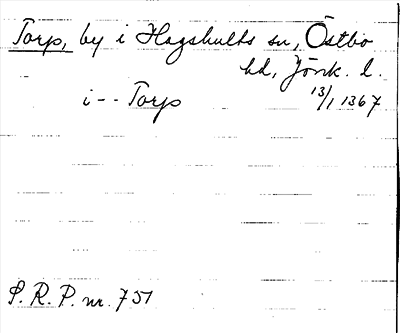 Torp, by i Hagshults sn, Östbo
hd, Jönk. l.
i -- Torp 13/1 1367
S. R. P. nr. 751